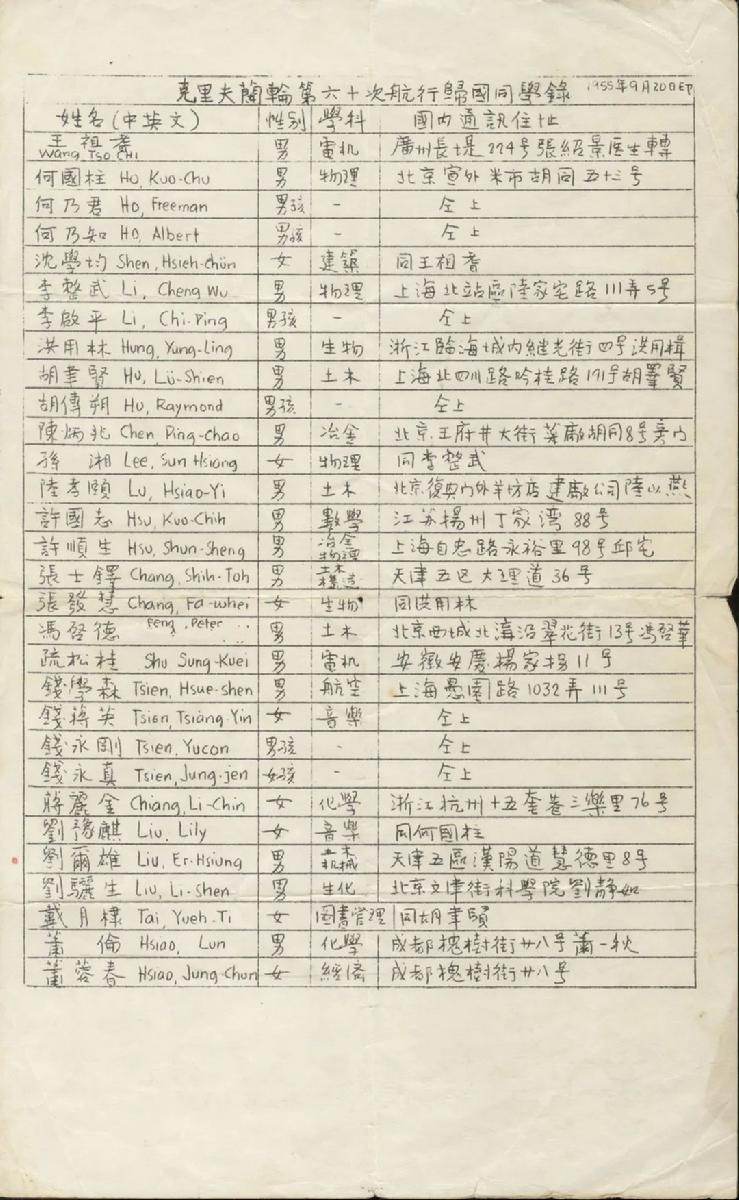 克里夫蘭輪第六十次航行歸國同學錄 1955年9月20日印
姓名(中英文) 性別 學科 國內通訊住址
王祖耆 Wang, Tso Chi 男 電机 廣州長堤224号張紹景医生轉
何國柱 Ho, Kuo-Chu 男 物理 北京宣外米市胡同五十三号
何乃君 Ho, Freeman 男孩 - 仝上
何乃知 Ho, Albert 男孩 - 仝上
沈學均 Shen, Hsieh-Chün 女 建築 同王祖耆
李整武 Li, Cheng Wu 男 物理 上海北站區陸家宅路111弄5号
李啟平 Li, Chi-Ping 男孩 - 仝上
洪用林 Hung, Yung-Ling 男 生物 浙江臨海城内継光街四号洪用楫
胡聿賢 Hu, Lü-Shien 男 土木 上海北四川路吟桂路171号胡睪賢
胡傳朔 Hu, Raymond 男孩 - 仝上
陳炳兆 Chen, Ping-Chao 男 冶金 北京王府井大街菜廠胡同8号旁门
孫湘 Lee, Sun Hsiang 女 物理 同李整武
陸孝頤 Lu, Hsiao-Yi 男 土木 北京復興门外羊坊店建廠公司陸以燕
許國志 Hsu, Kuo-Chih 男 數學 江苏揚州丁家湾88号
許順生 Hsu, Shun-Sheng 男 冶金物理 上海自忠路永裕里98号邱宅
張士鐸 Chang, Shih-Toh 男 土木構造 天津五区大理道36号
張發慧 Chang, Fa-whei 女 生物 同洪用林
馮啓德 Feng, Peter 男 土木 北京西城北海沿翠花街13号馮啓華
疏松桂 Shu Sung-Kuei 男 電机 安徽安慶楊家拐11号
錢學森 Tsien, Hsue-shen 男 航空 上海愚園路1032弄111号
錢蔣英 Tsien, Tsiang-Yin 女 音樂 仝上
錢永剛 Tsien, Yucon 男孩 - 仝上
錢永真 Tsien, Jung-jen 女孩 - 仝上
蔣麗金 Chiang, Li-Chin 女 化學 浙江杭州十五奎巷三樂里76号
劉豫麒 Liu, Lily 女 音樂 同何國柱
劉爾雄 Liu, Er-Hsiung 男 机械 天津五區漢陽道慧德里8号
劉驪生 Liu, Li-Shen 男 生化 北京文津街科學院劉静如
戴月棣 Tai, Yueh-Ti 女 图書管理 同胡聿賢
蕭倫 Hsiao, Lun 男 化學 成都槐樹街廿八号蕭一秋
蕭蓉春 Hsiao, Jung-Chun 女 經済 成都槐樹街廿八号